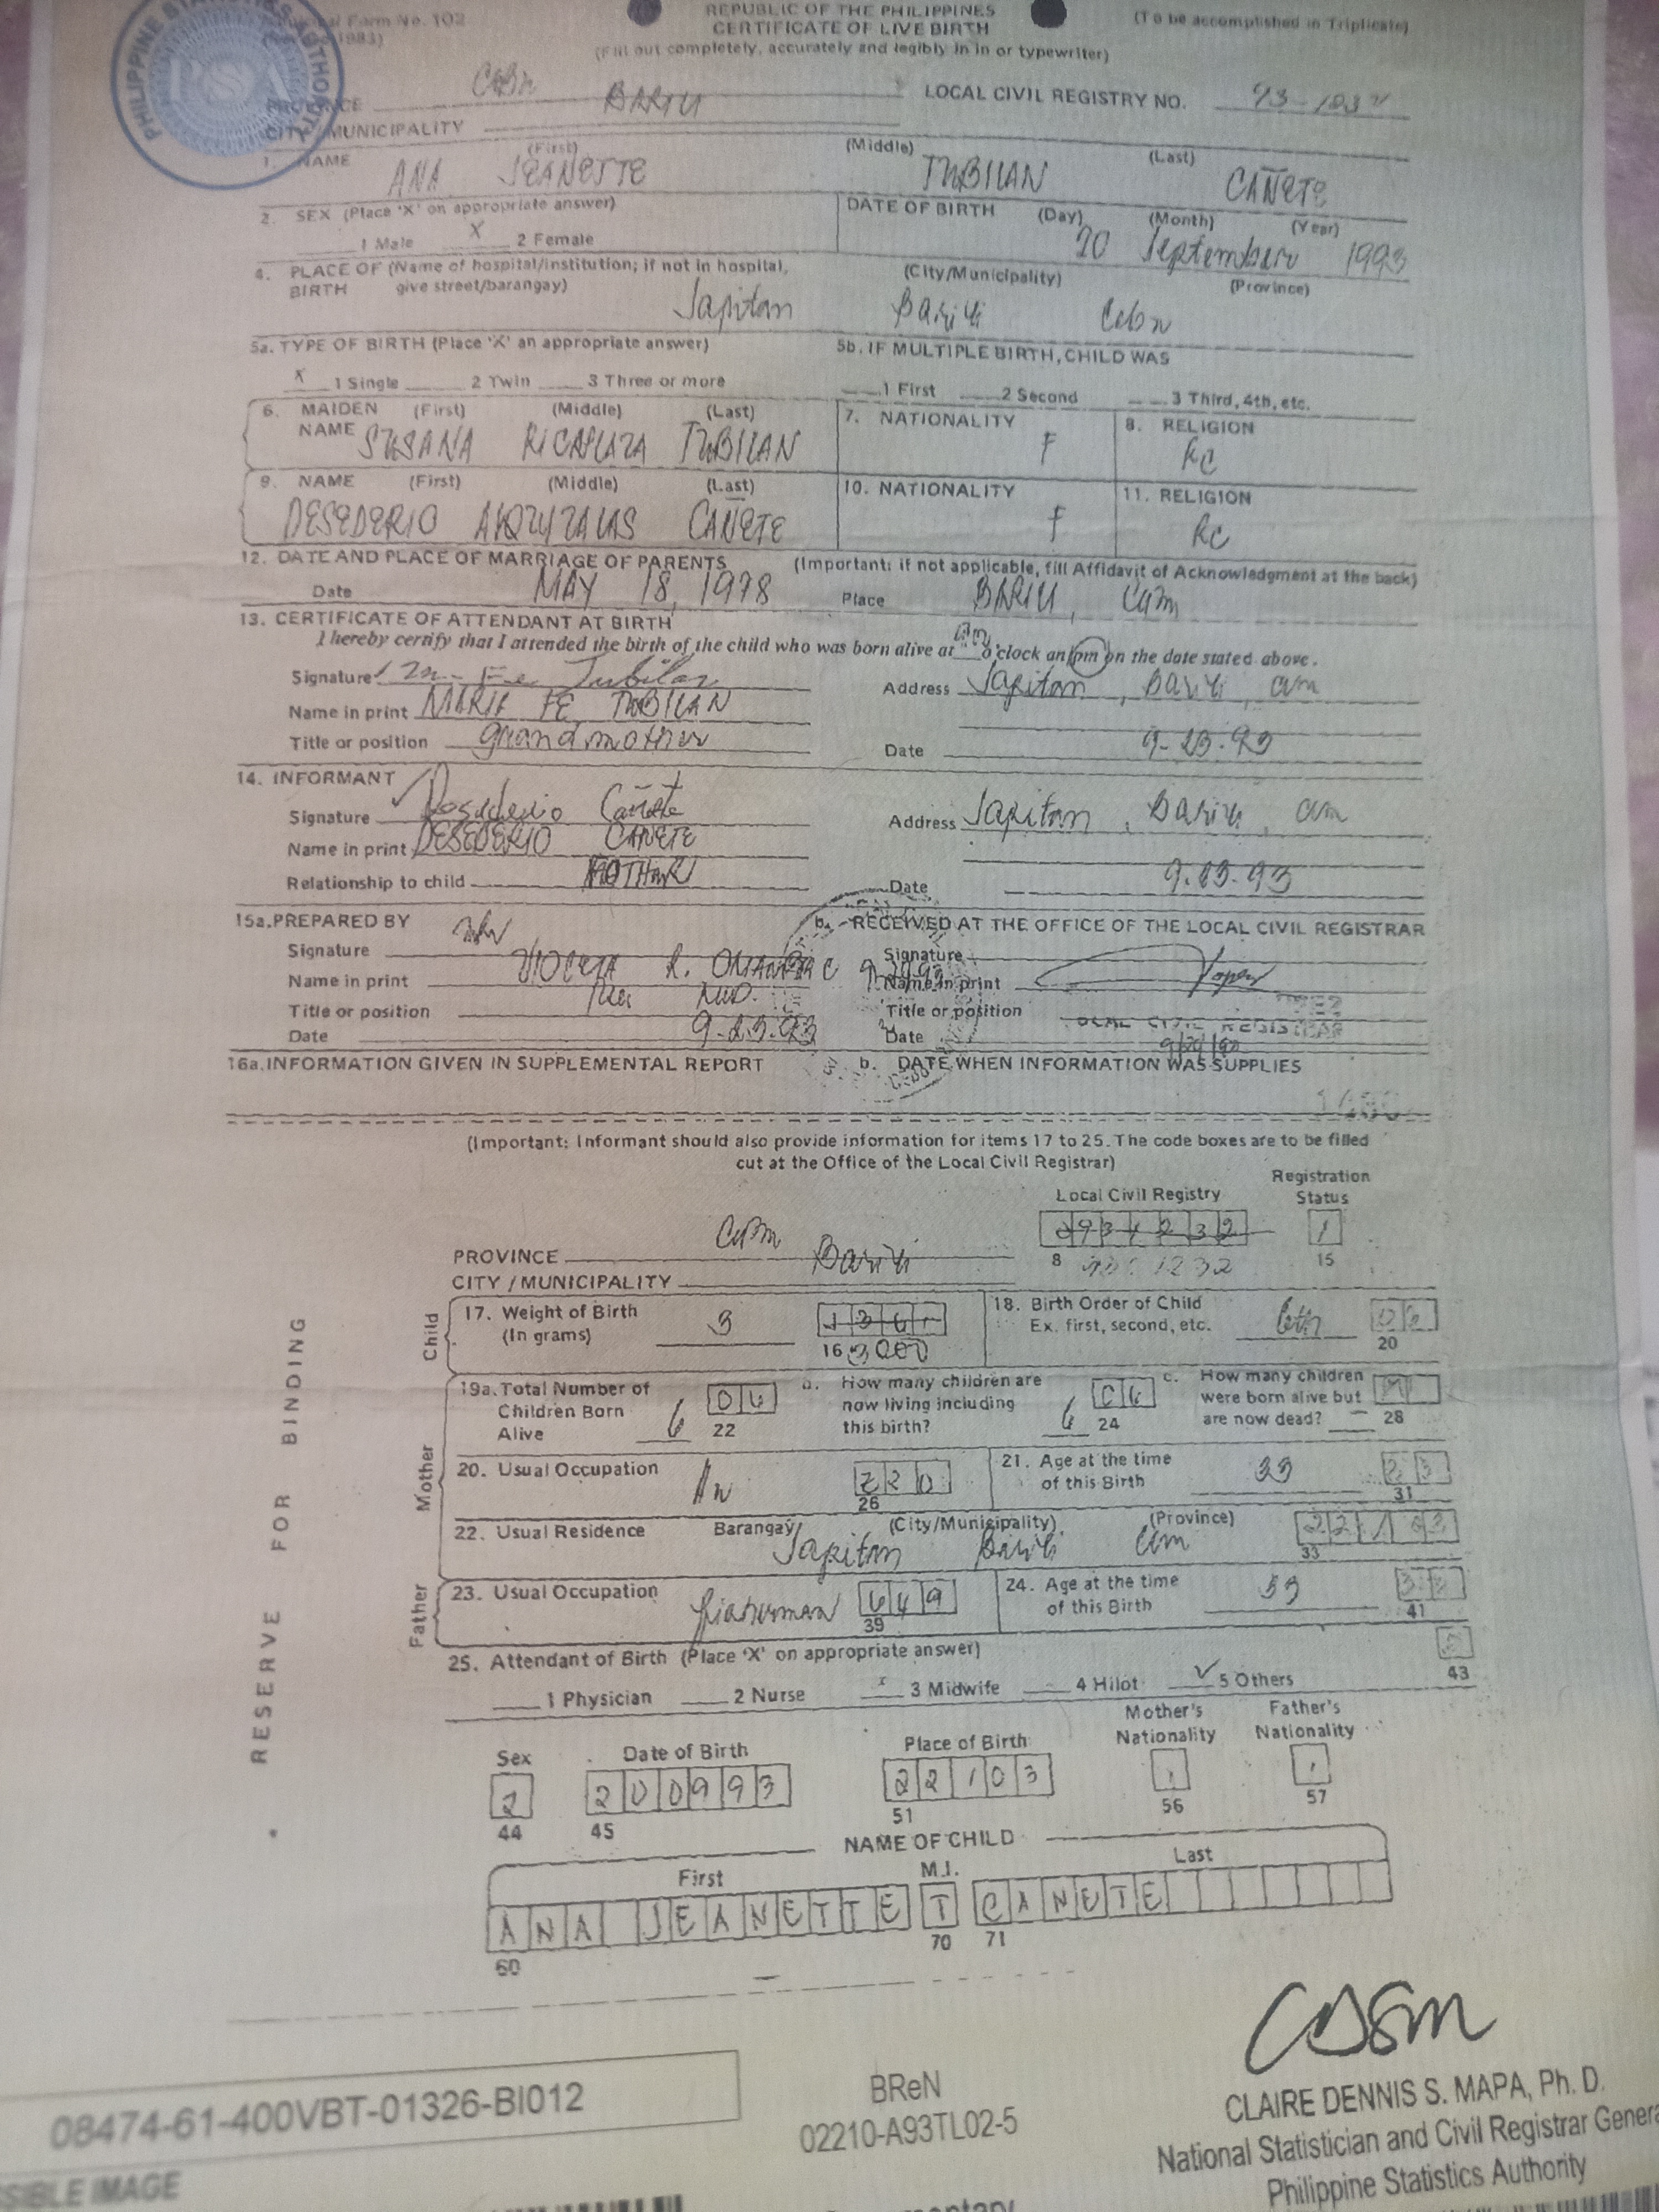 Municipal Form No. 102
REPUBLIC OF THE PHILIPPINES
CERTIFICATE OF LIVE BIRTH
(Fill out completely, accurately and legibly in in or typewriter)
(To be accomplished in Triplicate)
PHILIPPINE STATISTICS AUTHORITY
PSA
PROVINCE Cebu
CITY/MUNICIPALITY BARILI
LOCAL CIVIL REGISTRY NO.
1. NAME (First) (Middle) (Last)
ANA JEANETTE TUBILAN CAÑETE
2. SEX (Place 'X' on appropriate answer)
1 Male X 2 Female
DATE OF BIRTH (Day) (Month) (Year)
20 September 1993
4. PLACE OF BIRTH (Name of hospital/institution; if not in hospital, give street/barangay) (City/Municipality) (Province)
Japitan Barili Cebu
5a. TYPE OF BIRTH (Place 'X' an appropriate answer)
X 1 Single 2 Twin 3 Three or more
5b. IF MULTIPLE BIRTH, CHILD WAS
1 First 2 Second 3 Third, 4th, etc.
6. MAIDEN NAME (First) (Middle) (Last)
SUSANA TUBILAN
7. NATIONALITY F
8. RELIGION RC
9. NAME (First) (Middle) (Last)
DESEDERIO CAÑETE
10. NATIONALITY F
11. RELIGION RC
12. DATE AND PLACE OF MARRIAGE OF PARENTS (Important: if not applicable, fill Affidavit of Acknowledgment at the back)
Date MAY 18, 1978 Place BARILI, Cebu
13. CERTIFICATE OF ATTENDANT AT BIRTH
I hereby certify that I attended the birth of the child who was born alive at o'clock am/pm on the date stated above.
Signature Fe Tubilan
Address Japitan, Barili, Cebu
Name in print MARIA FE TUBILAN
Title or position grandmother
Date 9-23-93
14. INFORMANT
Signature Desederio Cañete
Address Japitan, Barili, Cebu
Name in print DESEDERIO CAÑETE
Relationship to child
Date 9-23-93
15a. PREPARED BY
Signature
Name in print
Title or position
Date 9-23-93
b. RECEIVED AT THE OFFICE OF THE LOCAL CIVIL REGISTRAR
Signature
Name in print
Title or position LOCAL CIVIL REGISTRAR
Date
16a. INFORMATION GIVEN IN SUPPLEMENTAL REPORT
b. DATE WHEN INFORMATION WAS SUPPLIES
(Important: Informant should also provide information for items 17 to 25. The code boxes are to be filled
cut at the Office of the Local Civil Registrar)
Local Civil Registry
Registration Status
1
8
15
PROVINCE Cebu
CITY/MUNICIPALITY Barili
RESERVE FOR BINDING
Child
17. Weight of Birth (In grams) 3
16 3000
18. Birth Order of Child
Ex. first, second, etc. 6th 06
20
Mother
19a. Total Number of Children Born Alive 6 06
22
b. How many children are now living including this birth? 6 06
24
c. How many children were born alive but are now dead? —
28
20. Usual Occupation
26
21. Age at the time of this Birth 33
31
22. Usual Residence Barangay (City/Municipality) (Province)
Japitan Barili Cebu
33
Father
23. Usual Occupation fisherman 649
39
24. Age at the time of this Birth
41
25. Attendant of Birth (Place 'X' on appropriate answer)
43
1 Physician 2 Nurse x 3 Midwife 4 Hilot ✓ 5 Others
Sex Date of Birth Place of Birth Mother's Nationality Father's Nationality
2 200993 22103 1 1
44 45 51 56 57
NAME OF CHILD
First M.I. Last
ANA JEANETTE T CANETE
60 70 71
08474-61-400VBT-01326-BI012
BReN
02210-A93TL02-5
CLAIRE DENNIS S. MAPA, Ph. D.
National Statistician and Civil Registrar General
Philippine Statistics Authority
SIBLE IMAGE